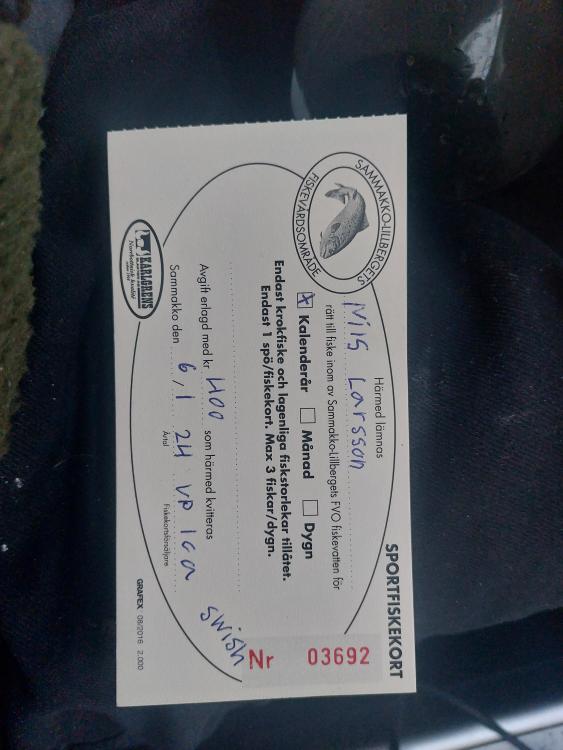 SPORTFISKEKORT
SAMMAKKO-LILLBERGETS
FISKEVÅRDSOMRÅDE
Nr 03692
Härmed lämnas
Nils Larsson
rätt till fiske inom av Sammakko-Lillbergets FVO fiskevatten för
Kalenderår Månad Dygn
Endast krokfiske och lagenliga fiskstorlekar tillåtet.
Endast 1 spö/fiskekort. Max 3 fiskar/dygn.
Avgift erlagd med kr 400 som härmed kvitteras
swish
Sammakko den 6/1 24 VP Ica
Årtal Fiskekortsförsäljare
KARLGRENS
GRAFEX 08/2016 2.000